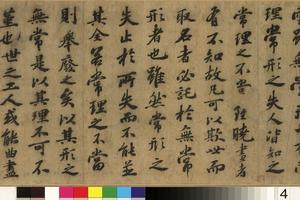 理常形之失人皆知之
常理之不當雖曉畫者
有不知故凡可以欺世而
取名者必託於無常
形者也雖然常形之
失止於所失而不能
其全若常理之不當
則舉廢之矣以其形之
無常是以其理不可不
謹也世之工人或能曲盡
4